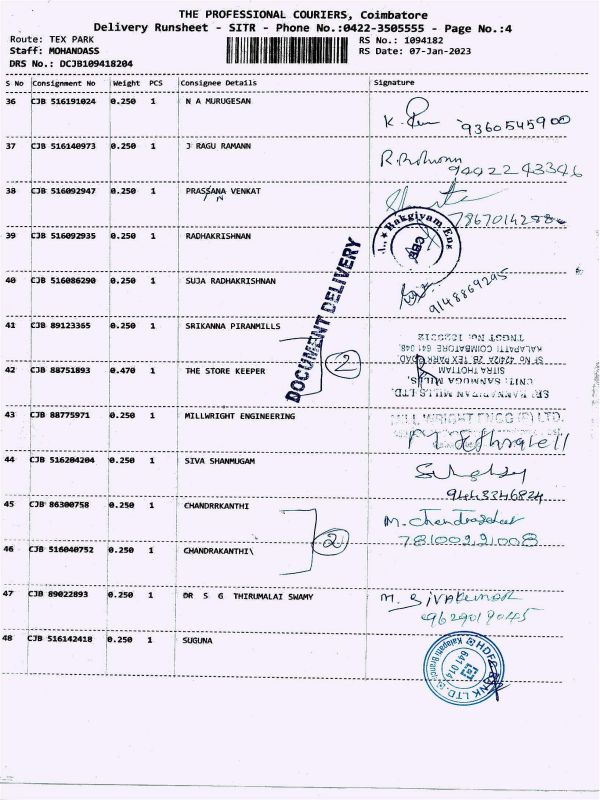 THE PROFESSIONAL COURIERS, Coimbatore
Delivery Runsheet - SITR - Phone No.:0422-3505555 - Page No.:4
Route: TEX PARK RS No.: 1094182
Staff: MOHANDASS RS Date: 07-Jan-2023
DRS No.: DCJB109418204
S No Consignment No Weight PCS Consignee Details Signature
36 CJB 516191024 0.250 1 N A MURUGESAN
K. 9360545900
37 CJB 516140973 0.250 1 J RAGU RAMANN
9442243346
38 CJB 516092947 0.250 1 PRASSANA VENKAT
N
39 CJB 516092935 0.250 1 RADHAKRISHNAN
Bakgiyam Eng
CBE
40 CJB 516086290 0.250 1 SUJA RADHAKRISHNAN
9148869295
DOCUMENT DELIVERY
41 CJB 89123365 0.250 1 SRIKANNA PIRANMILLS
KALAPATTI COIMBATORE 641 048.
SF No 424/2A 2B TEX PARK ROAD
42 CJB 88751893 0.470 1 THE STORE KEEPER
2
SITRA THOTTAM
UNIT: SANMUGA MILLS,
SRI KANNAPIRAN MILLS LTD.
43 CJB 88775971 0.250 1 MILLWRIGHT ENGINEERING
MILL WRIGHT ENGG (P) LTD.
44 CJB 516204204 0.250 1 SIVA SHANMUGAM
9443346824
45 CJB 86300758 0.250 1 CHANDRRKANTHI
M. Chandrasekar
78100221008
46 CJB 516040752 0.250 1 CHANDRAKANTHI\
2
47 CJB 89022893 0.250 1 DR S G THIRUMALAI SWAMY
M. SIVAKUMAR
9629019045
48 CJB 516142418 0.250 1 SUGUNA
HDFC BANK LTD.
Kalapatti Branch
641 014